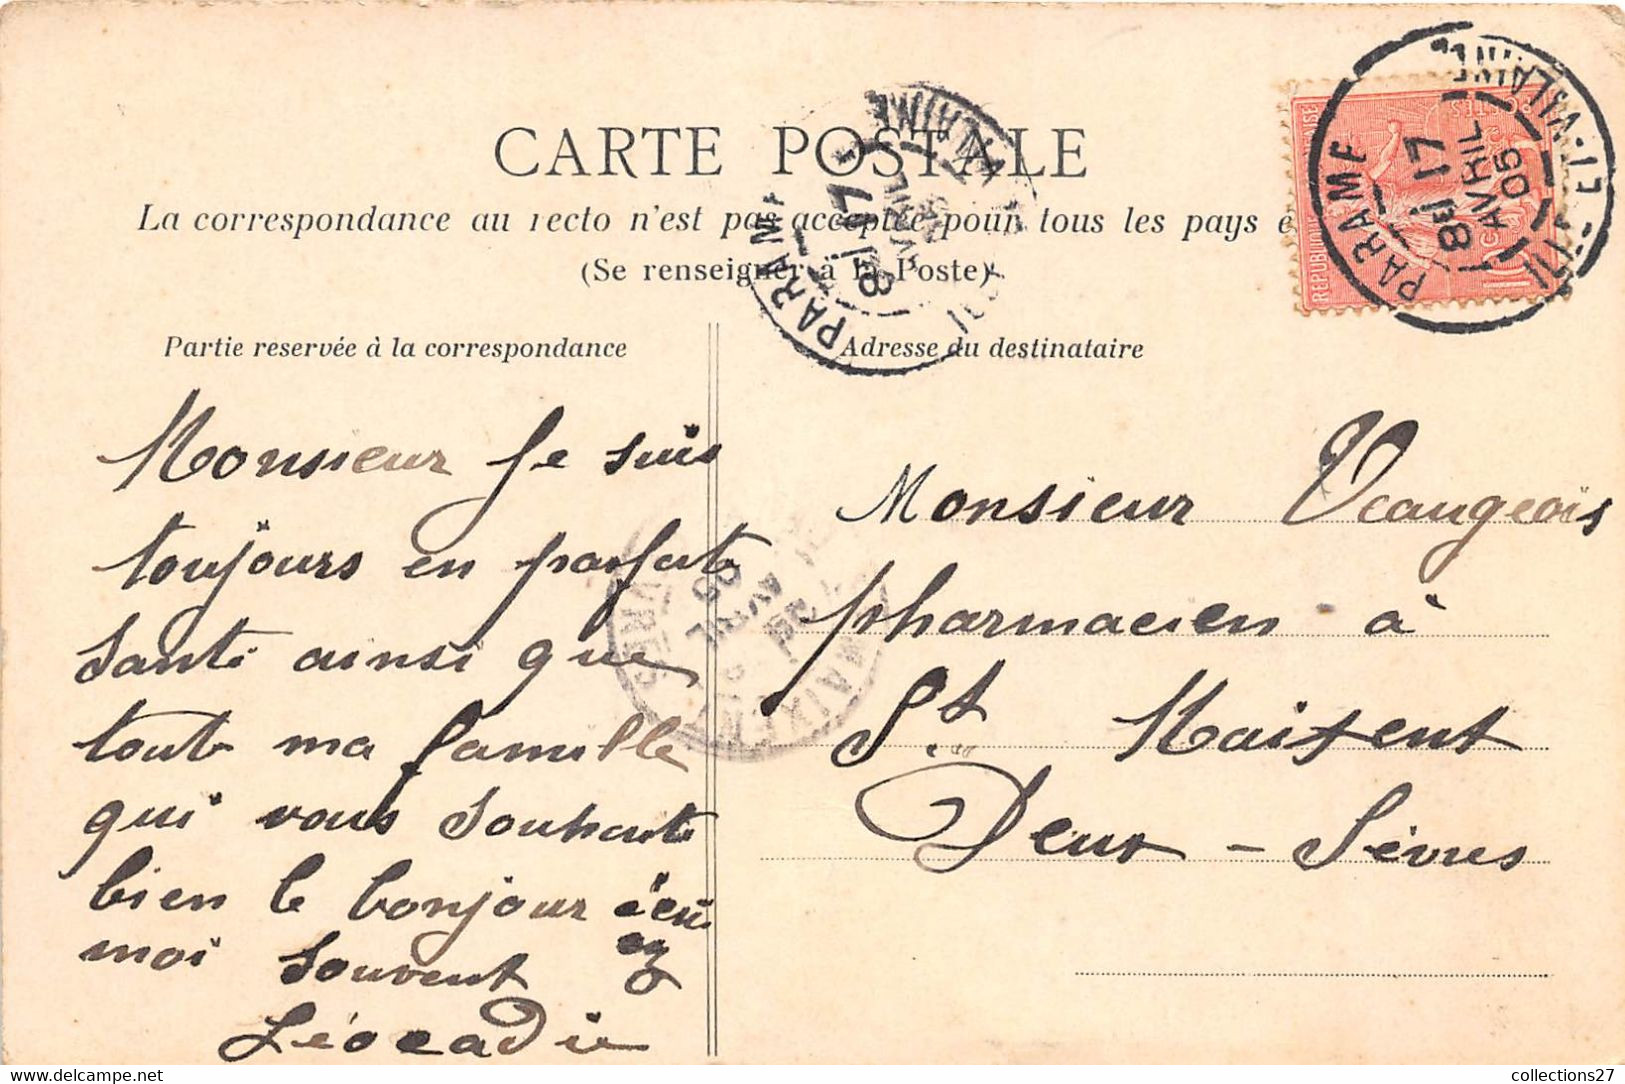 CARTE POSTALE
La correspondance au recto n'est pas acceptée pour tous les pays
(Se renseigner à la Poste)
Partie reservée à la correspondance
Monsieur Je suis
toujours en parfaite
Santé ainsi que
tout ma famille
qui vous souhaite
bien le bonjour écriv
ez
moi souvent
Léocadie
Adresse du destinataire
Monsieur Veaugeois
pharmacien à
St. Maixent
Deux-Sèvres
PARAME
8E
17
AVRIL
PARAME
8E
17
AVRIL
05
ILLE-ET-VILAINE
REPUBLIQUE FRANÇAISE
POSTES
10
AVRIL
05
collections27